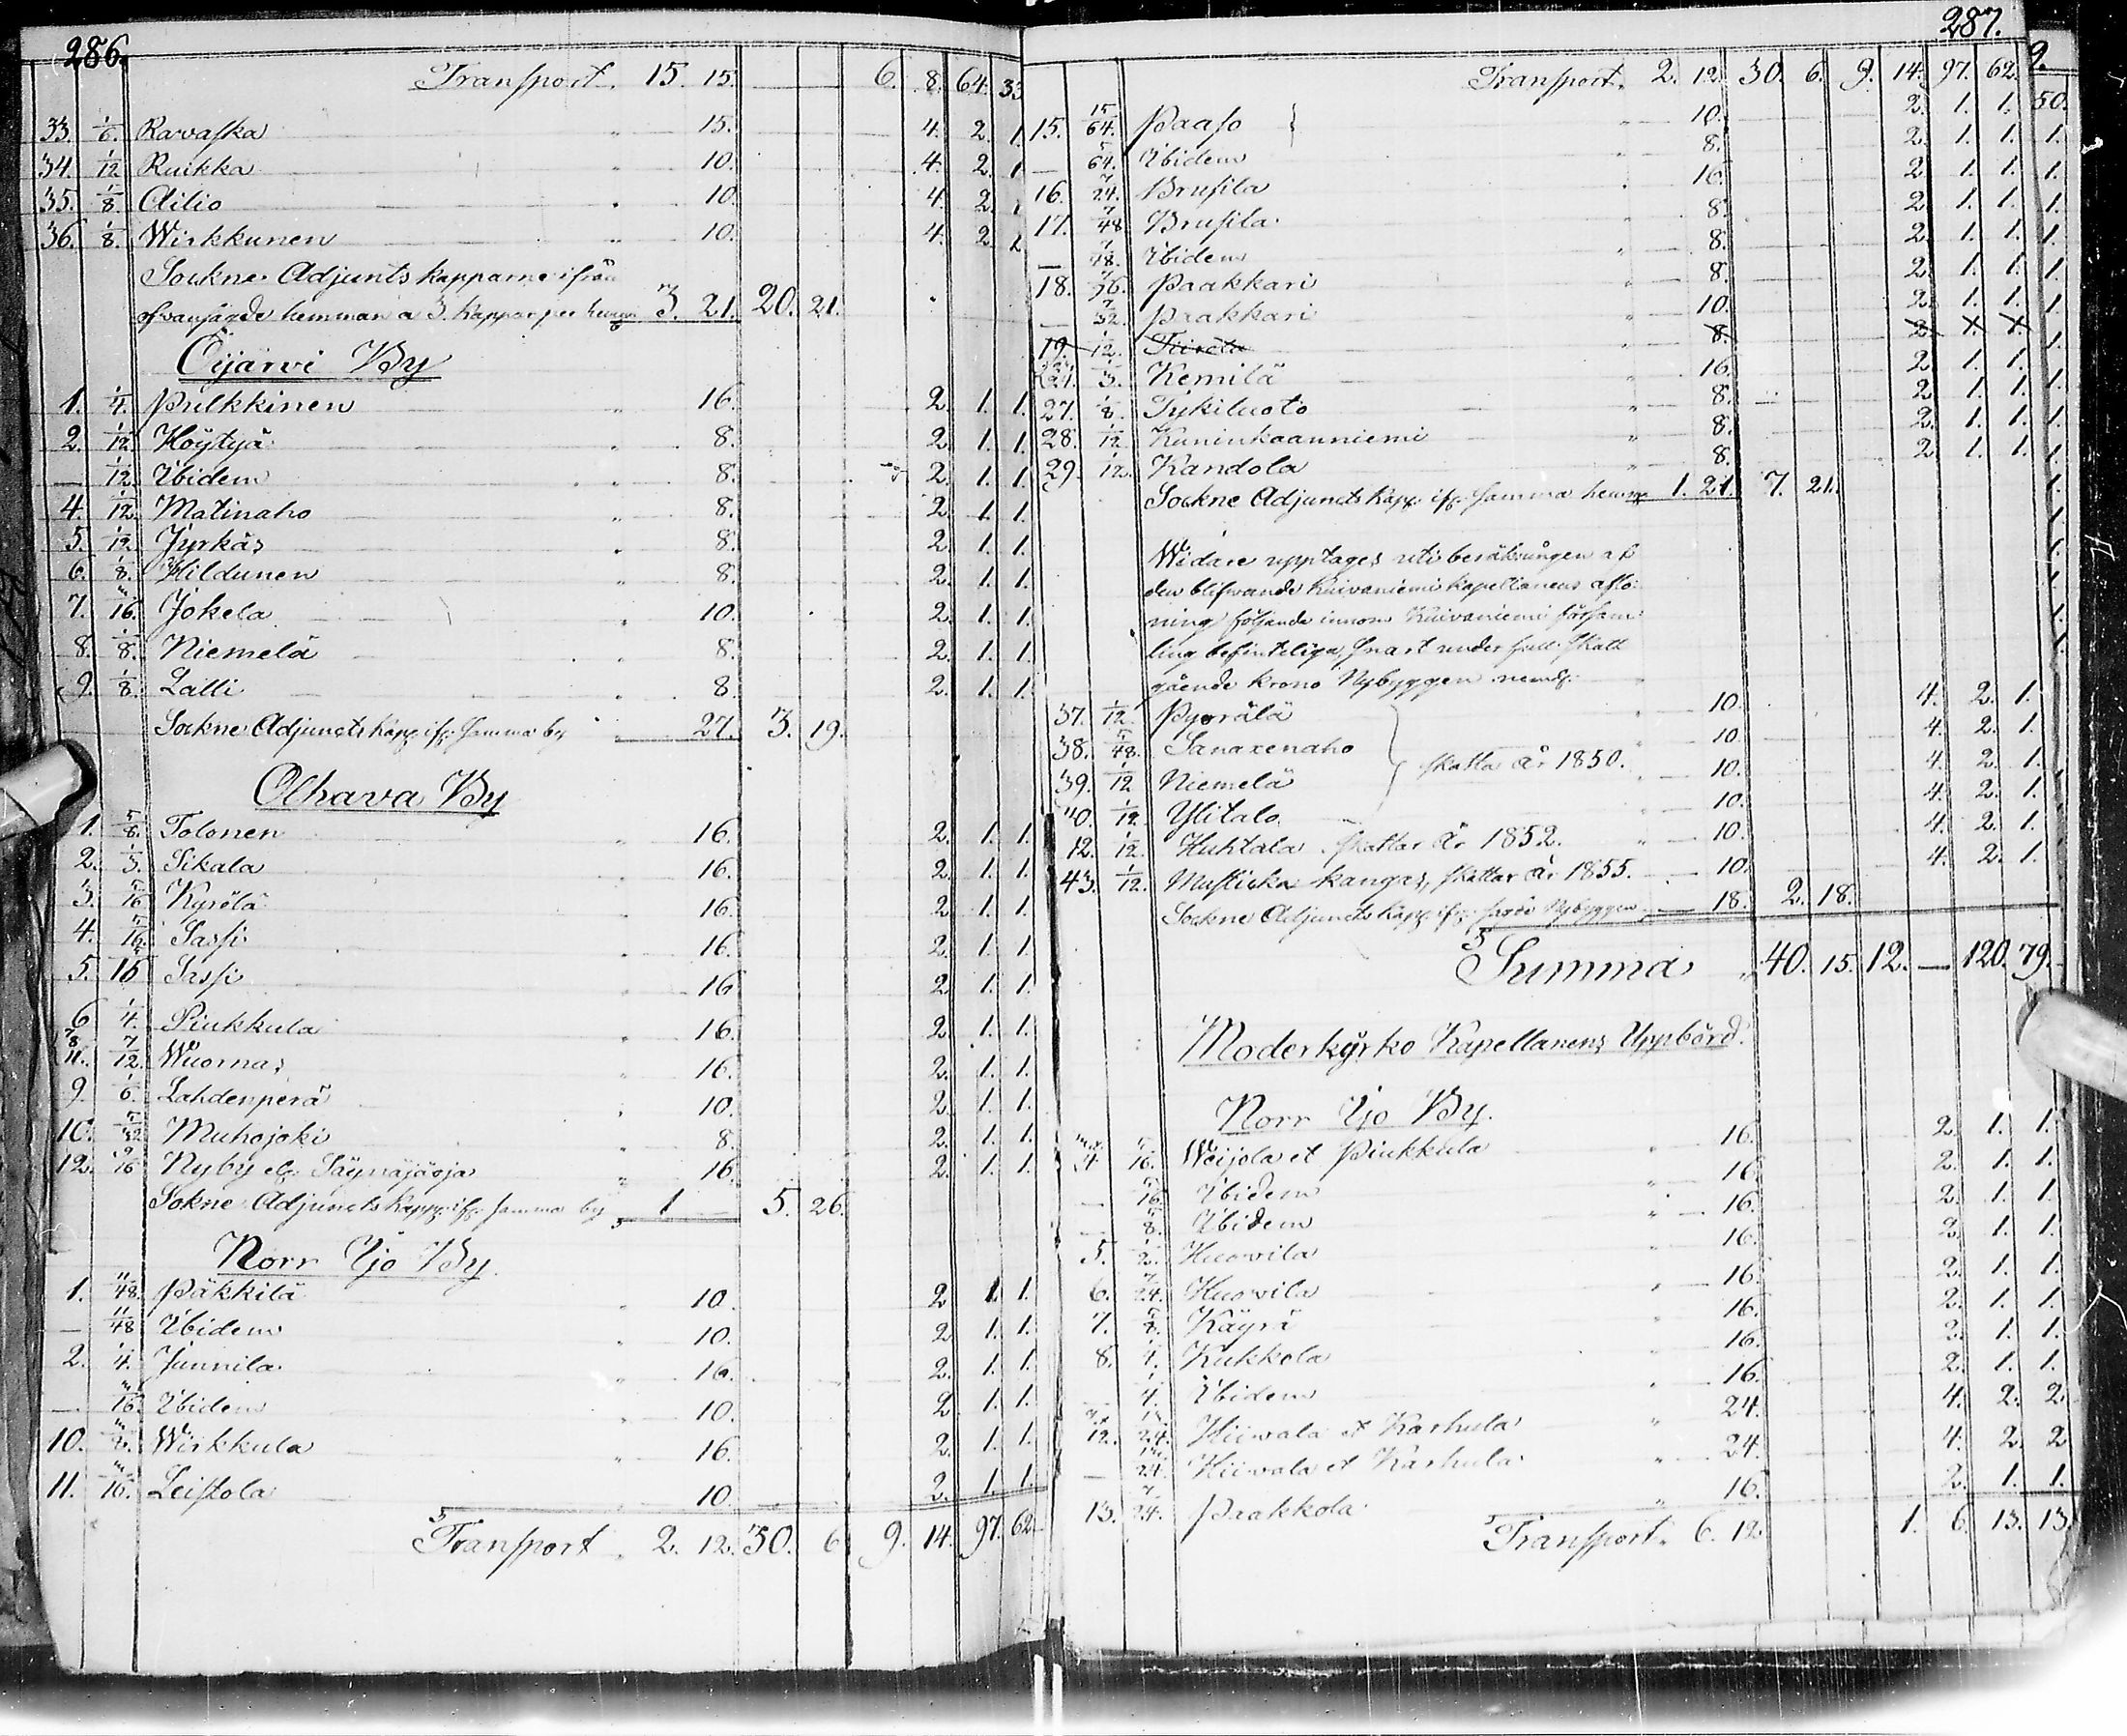 286.
Transport. 15. 15. 6. 8. 64. 33
33. 1/6. Ravaska " 15. 4. 2. 1
34. 1/12 Ruikka " 10. 4. 2. 1
35. 1/8. Ailio " 10. 4. 2. 1
36. 1/8. Wirkkunen " 10. 4. 2. 1
Sockne Adjunts kapparne ifrån
ofvanförde hemman a 3. kappar per 3. 21. 20. 21.
Oijärvi By
1. 1/4. Pulkkinen " 16. 2. 1. 1.
2. 1/12. Höytyä " 8. 2. 1. 1.
— 1/12. Ibidem " 8. 2. 1. 1.
4. 1/12. Matinaho " 8. 2. 1. 1.
5. 1/12. Jyrkäs " 8. 2. 1. 1.
6. 1/8. Hildunen " 8. 2. 1. 1.
7. 3/16. Jokela " 10. 2. 1. 1.
8. 1/8. Niemelä " 8. 2. 1. 1.
9. 1/8. Lalli " 8. 2. 1. 1.
Sockne Adjuncts kapp. ifr. samma by 27. 3. 19.
Olhava By
1. 5/8. Tolonen " 16. 2. 1. 1.
2. 1/3. Sikala " 16. 2. 1. 1.
3. 5/16 Kyrölä " 16. 2. 1. 1.
4. 5/16. Sassi " 16. 2. 1. 1.
5. 5/16 Sassi " 16 2. 1. 1.
6 1/4. Piukkula " 16. 2. 1. 1.
7. 8. 11. 7/12. Wuornas " 16. 2. 1. 1.
9. 1/6. Lahdenperä " 10. 2. 1. 1.
10. 5/32 Muhojoki " 8. 2. 1. 1.
12. 9/16 Nyby el. Säynäjäoja " 16. 2. 1. 1.
Sokne Adjuncts kapp. ifr. samma by 1 — 5. 26.
Norr Ijo By.
1. 11/48. Päkkilä " 10. 2. 1. 1.
— 11/48 Ibidem " 10. 2. 1. 1.
2. 1/4. Junnila " 16. 2. 1. 1.
— 3/16. Ibidem " 10. 2. 1. 1.
10. 3/8. Wirkkula " 16. 2. 1. 1.
11. 3/16. Leistola " 10. 2. 1. 1.
Transport " 2. 12. 30. 6 9. 14. 97. 62
287.
Transport. 2. 12. 30. 6. 9. 14. 97. 62.
15. 15/64. Paaso " 10. 2. 1. 1.
— 5/64. Ibidem " 8. 2. 1. 1.
16. 7/24. Brusila " 16. 2. 1. 1.
17. 7/48 Brusila " 8. 2. 1. 1.
— 7/48. Ibidem " 8. 2. 1. 1.
18. 7/36. Paakkari " 8. 2. 1. 1.
— 7/32. Paakkari " 10. 2. 1. 1.
19. 1/12. Tiirola " 8. 2. 1. 1.
24. 1/3. Kemilä " 16. 2. 1. 1.
27. 1/8. Tykiluoto " 8. 2. 1. 1.
28. 1/12. Kuninkaanniemi " 8. 2. 1. 1.
29. 1/12. Kandola " 8. 2. 1. 1.
Sockne Adjuncts kapp. ifr. samma hemm 1. 21. 7. 21.
Widare upptages uti beräkningen af
den blifwande Kuivaniemi kapellanens aflö-
ning följande innom Kuivaniemi försam-
ling befinteliga, snart under full skatt
gående krono Nybyggen neml:
37. 1/12. Pyörälä " 10. 4. 2. 1.
38. 5/48. Sanaxenaho " 10. 4. 2. 1.
39. 1/12 Niemelä skatta år 1850. " 10. 4. 2. 1.
40. 1/12. Ylitalo " 10. 4. 2. 1.
12. 1/12. Huhtala skattar år 1852. " 10. 4. 2. 1.
43. 1/12. Mustiska kangas, skattar år 1855. 10. 4. 2. 1.
Sockne Adjuncts kapp. ifr. sagde Nybyggen 18. 2. 18.
Summa " 40. 15. 12. — 120. 79.
Moderkyrko Kapellanens Uppbörd.
Norr Ijo By.
4 5/16. Weijola et Piukkula " 16. 2. 1. 1.
— 5/16. Ibidem " 16. 2. 1. 1.
— 5/8. Ibidem " 16. 2. 1. 1.
5. 1/2. Huovila " 16. 2. 1. 1.
6. 7/24. Huovila " 16. 2. 1. 1.
7. 5/8. Käyrä " 16. 2. 1. 1.
8. 1/4. Kukkola " 16. 2. 1. 1.
— 1/4. Ibidem " 16. 2. 1. 1.
12. 13/24. Hiivala et Karhula " 24. 4. 2. 2.
— 13/24. Hiivala et Karhula " 24. 4. 2. 2
13. 7/24. Paakkola " 16. 2. 1. 1.
Transport " 6. 12 1. 6. 13. 13.